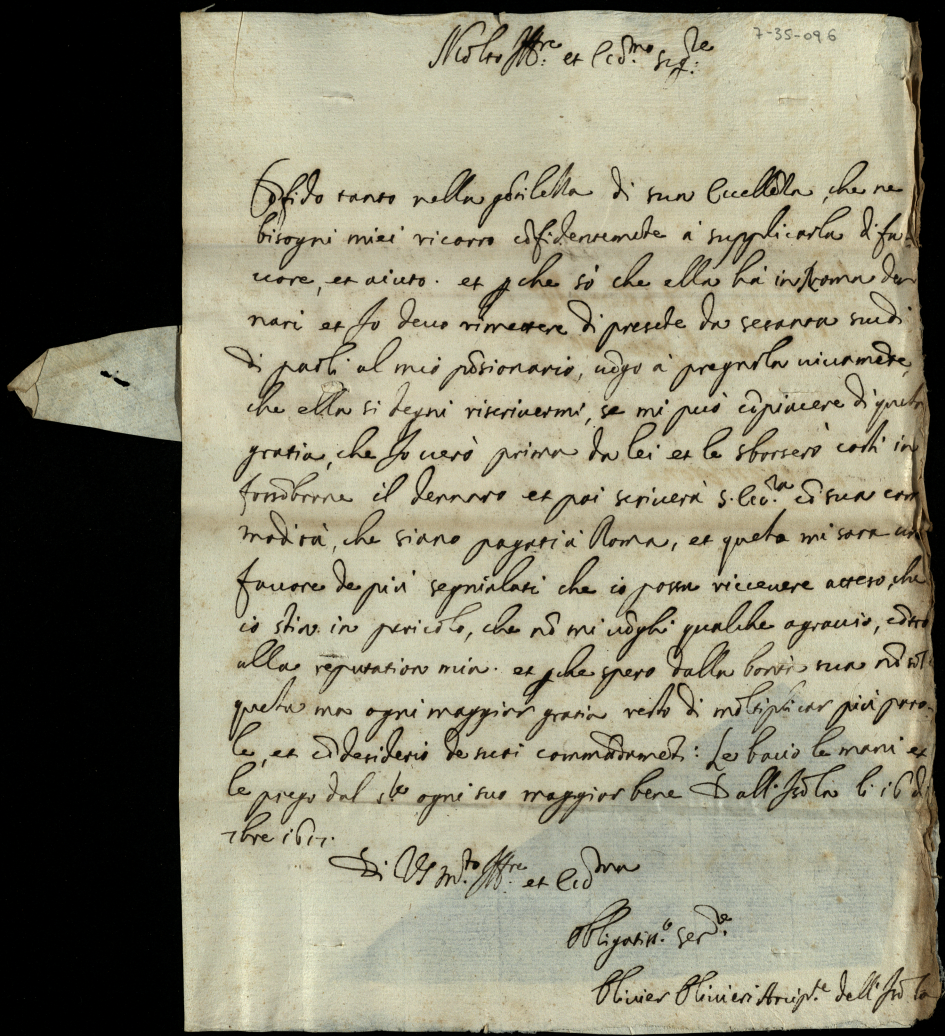 7-35-096
Molto Ill.re et Ecc.mo sig.re
Cõfido tanto nella gẽtilezza di sua Eccellẽza, che ne
bisogni miei ricorro cõfidentemẽte à supplicarla di fa-
uore, et aiuto. et ꝑche sò che ella hà in Roma dan
nari et Io deuo rimettere di presẽte da sesanta scudi
di paoli al mio pẽsionario, uẽgo à pregarla uiuamẽte,
che ella si degni riscriuermi, se mi può cõpiacere di questa
gratia, che Io uerò prima da lei et le sborserò costì in
fossõbrone il dennaro et poi scriuerà S. Ecc.za cõ sua com
modità, che siano pagati à Roma, et questo mi sarà un
fauore de più segnialati che io possa riceuere atteso, che
io stia in pericolo, che nõ mi uẽghi qualche agrauio, cõtro
alla reputation mia. et ꝑche spero dalla bontà sua nõ sol
questa ma ogni maggior gratia resto di moltiplicar più paro-
le, et cõ desiderio de suoi commãdamẽti: Le bacio le mani et
le prego dal S.re ogni suo maggior bene Dall'Isola li 16 di
7bre 161
Di VS m.to Ill.re et Ecc.ma
Obligatiss.o ser.re
Olivier Olivieri Arcip.te dell'Isola